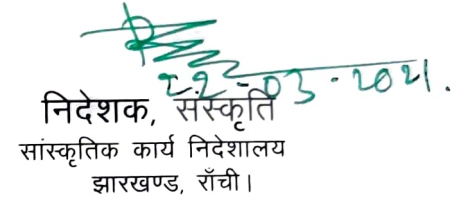 22-03-2021.
निदेशक, संस्कृति
सांस्कृतिक कार्य निदेशालय
झारखण्ड, राँची।